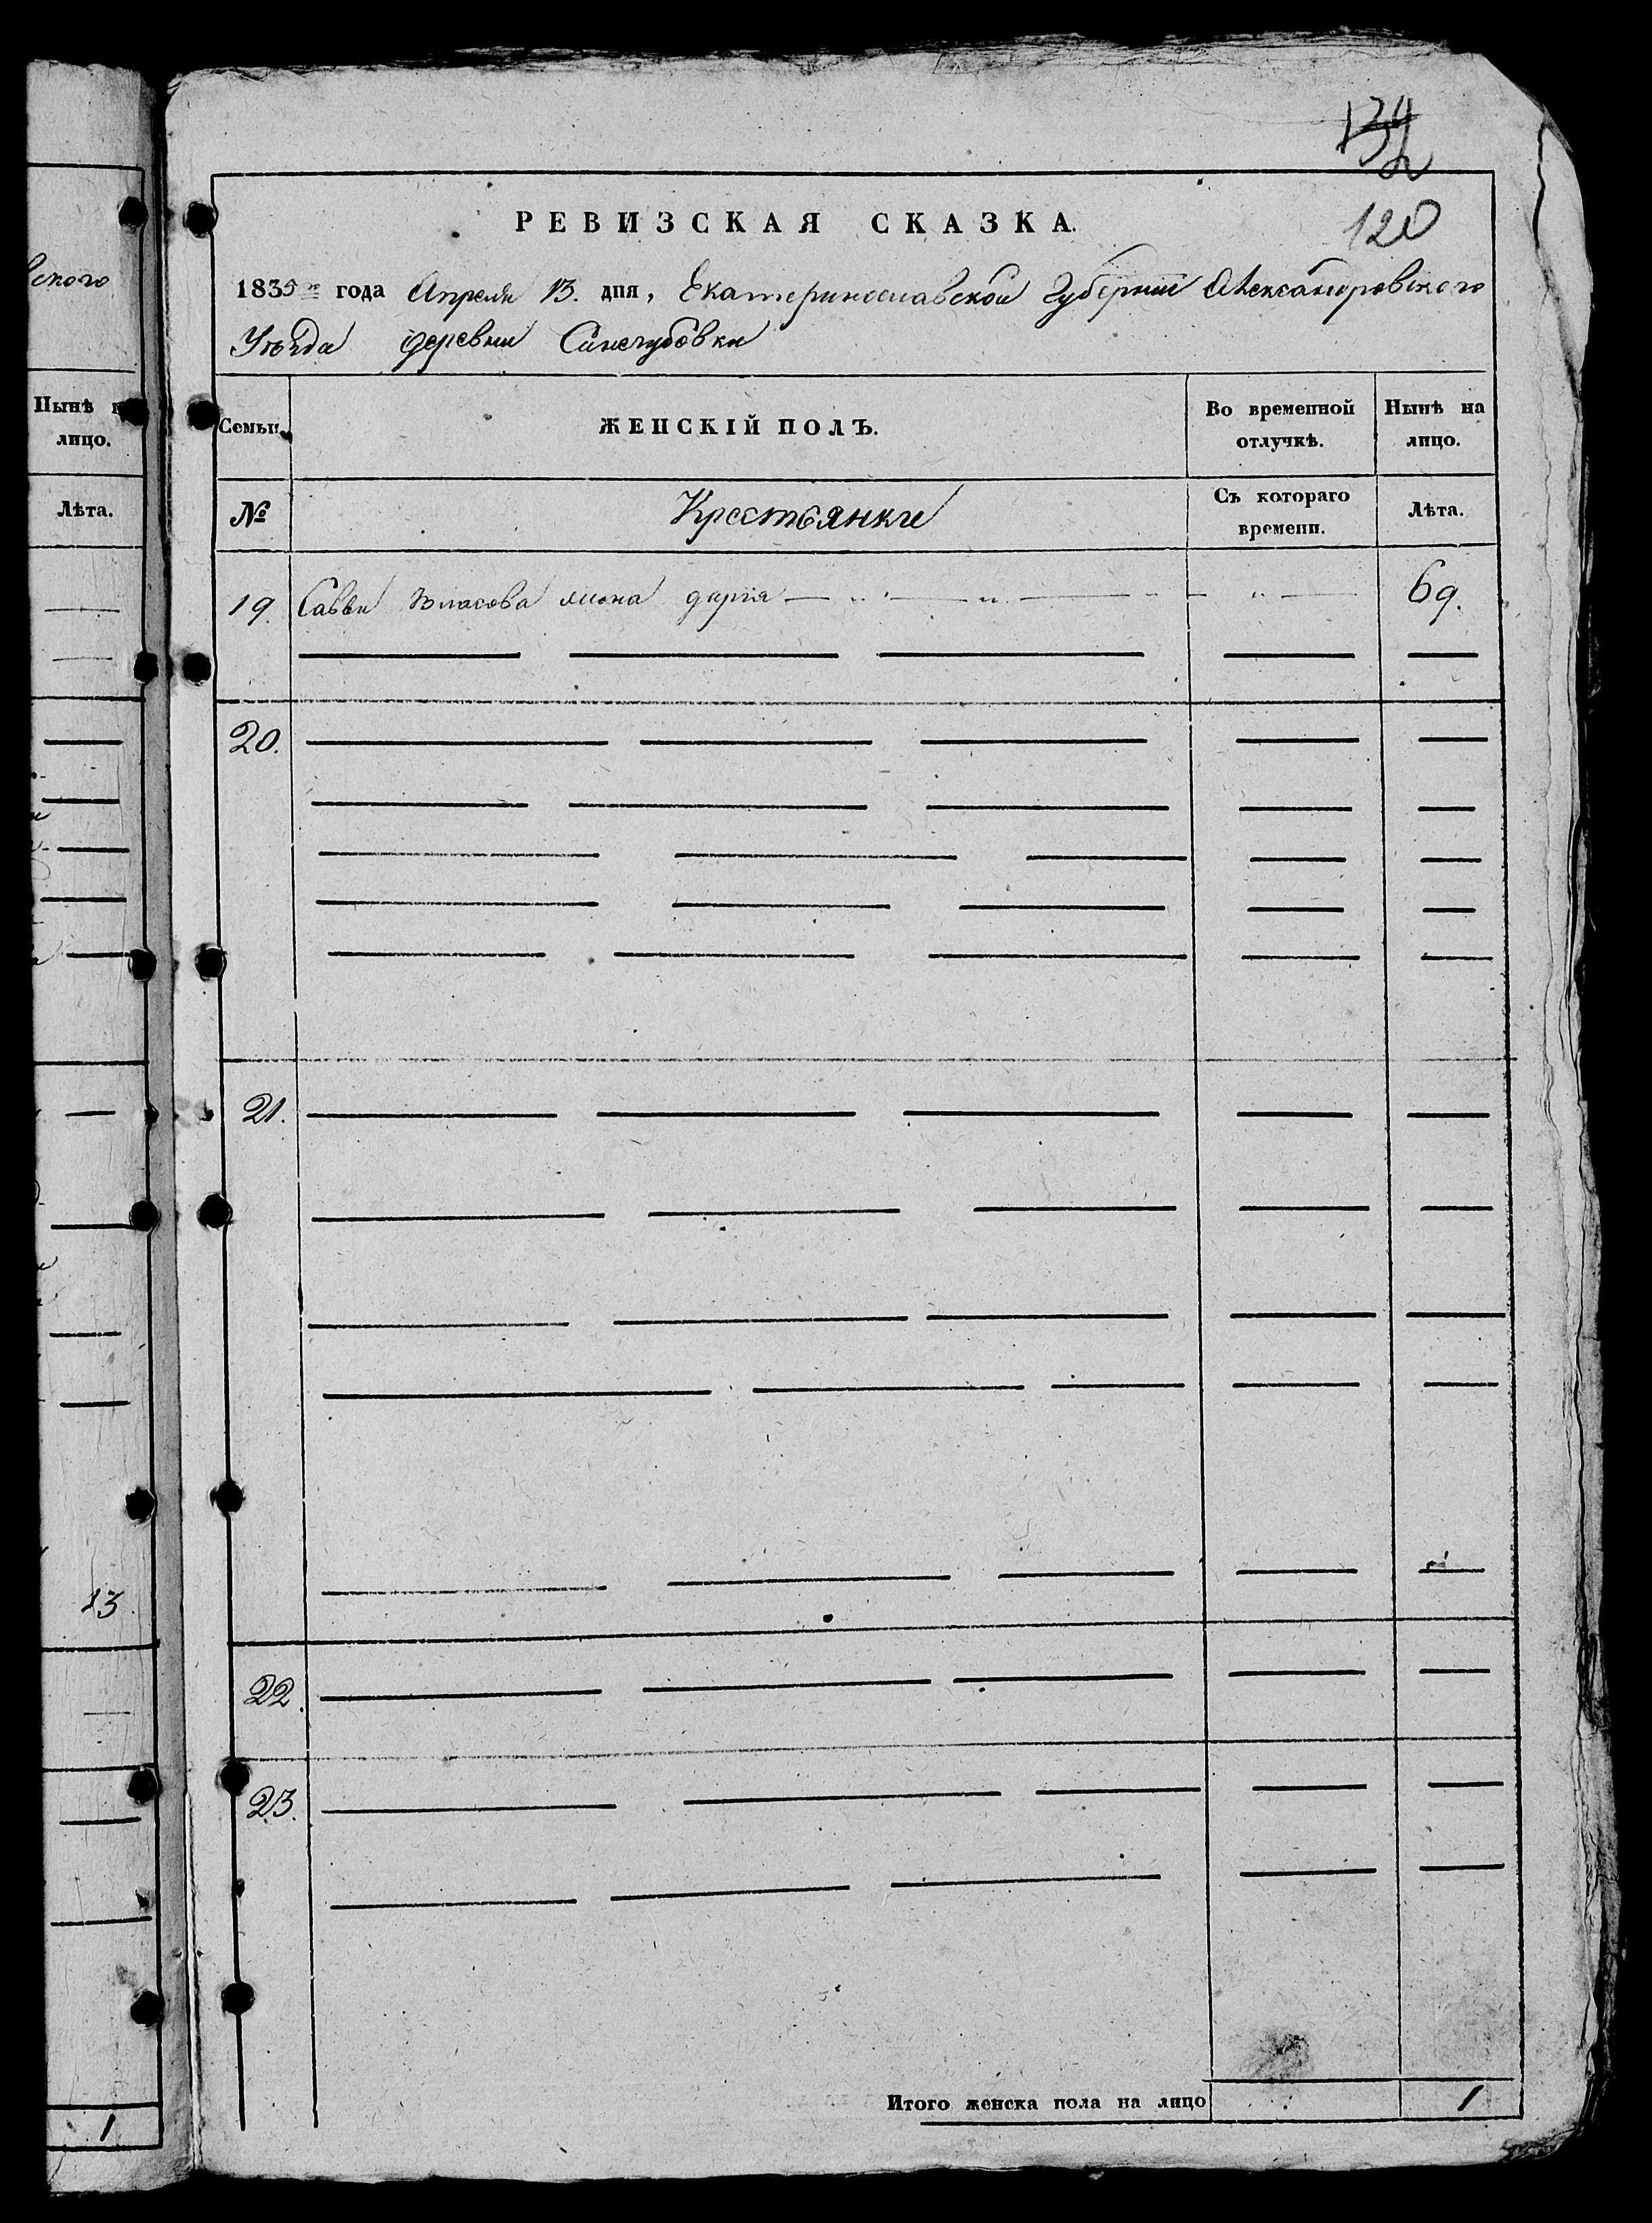 139
2
РЕВИЗСКАЯ СКАЗКА.
120
1835го года Апреля 13. дня, Екатеринославской Губернии Александровского
Уѣзда деревни Синегубовки
Семьи. ЖЕНСКІЙ ПОЛЪ. Во временной отлучкѣ. Нынѣ на лицо.
№ Крестьянки Съ котораго времени. Лѣта.
19. Саввы Власова жена дарія 69.
20.
21.
22.
23.
Итого женска пола на лицо 1
вского
Нынѣ
лицо.
Лѣта.
13
1